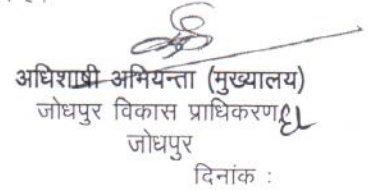 अधिशाषी अभियन्ता (मुख्यालय)
जोधपुर विकास प्राधिकरण
जोधपुर
दिनांक :